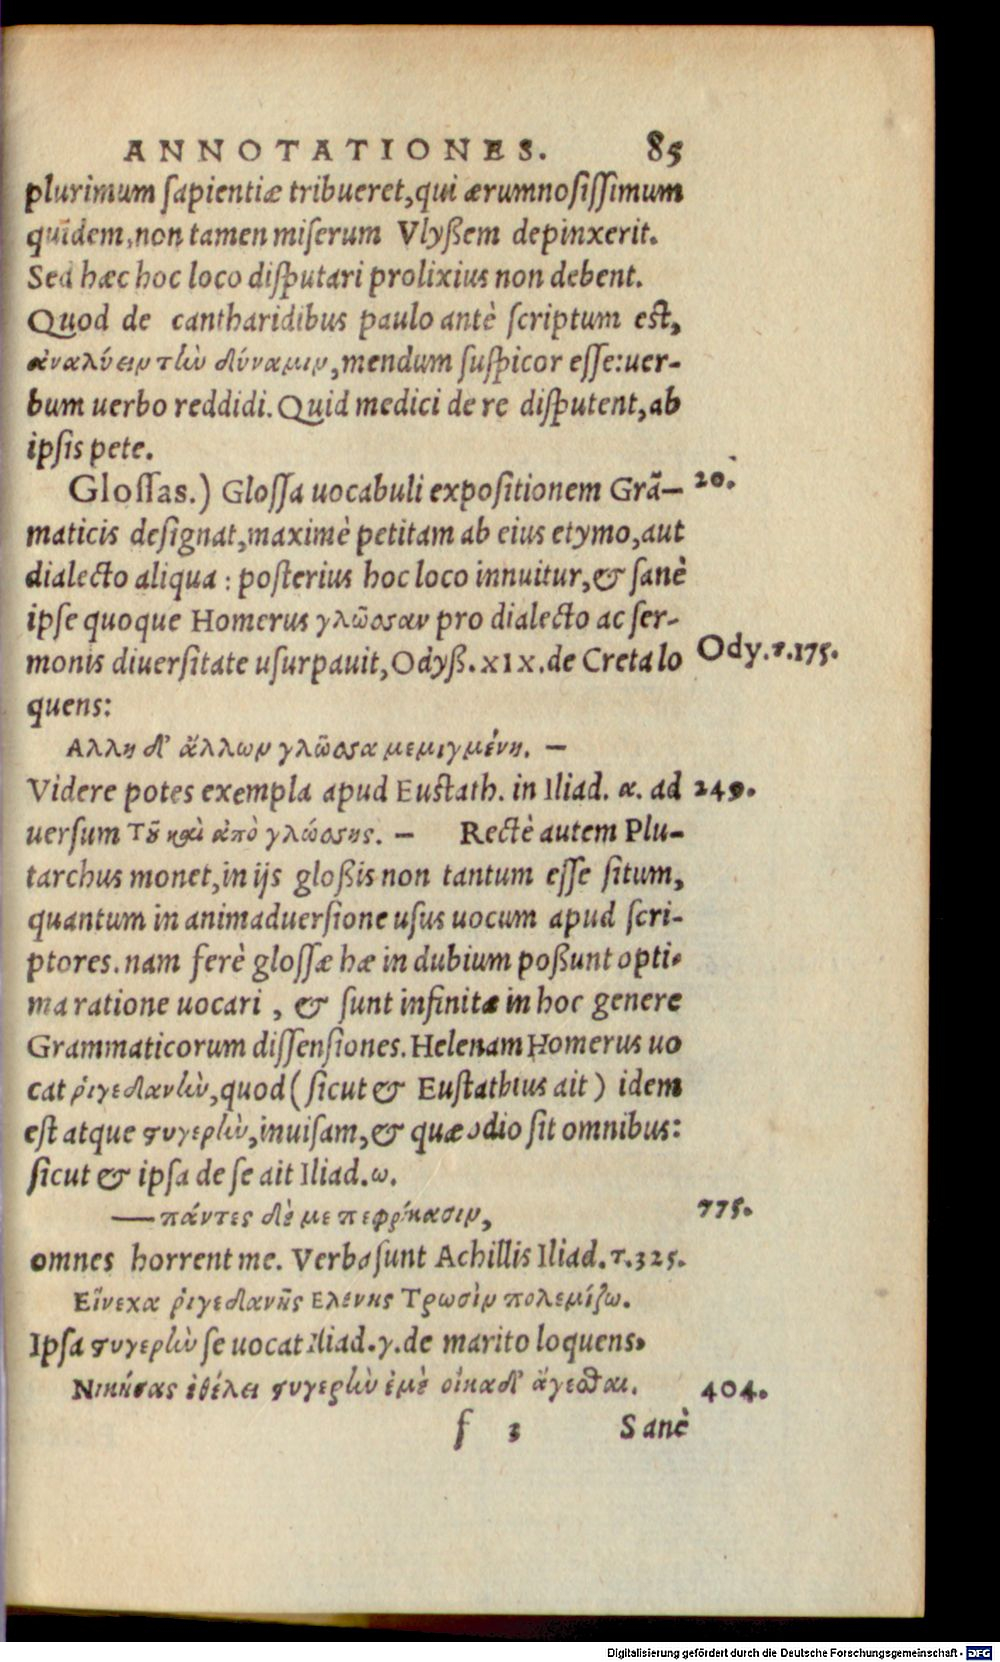 ANNOTATIONES. 85
plurimum sapientiæ tribueret, qui ærumnosissimum
quidem, non tamen miserum Vlyßem depinxerit.
Sed hæc hoc loco disputari prolixius non debent.
Quod de cantharidibus paulo antè scriptum est,
ἀναλύειν τὴν δύναμιν, mendum suspicor esse: uer-
bum uerbo reddidi. Quid medici de re disputent, ab
ipsis pete.
Glossas.) Glossa uocabuli expositionem Grã- 20.
maticis designat, maximè petitam ab eius etymo, aut
dialecto aliqua: posterius hoc loco innuitur, & sanè
ipse quoque Homerus γλῶσσαν pro dialecto ac ser-
monis diuersitate usurpauit, Odyß. XIX. de Creta lo Ody. τ. 175.
quens:
Αλλη δ' ἄλλων γλῶσσα μεμιγμένη. —
Videre potes exempla apud Eustath. in Iliad. α. ad 249.
uersum Τοῦ καὶ ἀπὸ γλώσσης. — Rectè autem Plu-
tarchus monet, in ijs gloßis non tantum esse situm,
quantum in animaduersione usus uocum apud scri-
ptores. nam ferè glossæ hæ in dubium poßunt opti-
ma ratione uocari, & sunt infinitæ in hoc genere
Grammaticorum dissensiones. Helenam Homerus uo
cat ῥιγεδανὴν, quod (sicut & Eustathius ait) idem
est atque στυγερὴν, inuisam, & quæ odio sit omnibus:
sicut & ipsa de se ait Iliad. ω.
— πάντες δέ με πεφρίκασιν, 775.
omnes horrent me. Verba sunt Achillis Iliad. τ. 325.
Εἵνεκα ῥιγεδανῆς Ελένης Τρωσὶν πολεμίζω.
Ipsa στυγερὴν se uocat Iliad. γ. de marito loquens,
Νικήσας ἐθέλει στυγερὴν ἐμὲ οἴκαδ' ἄγεσθαι. 404.
f 3 Sanè
Digitalisierung gefördert durch die Deutsche Forschungsgemeinschaft - DFG